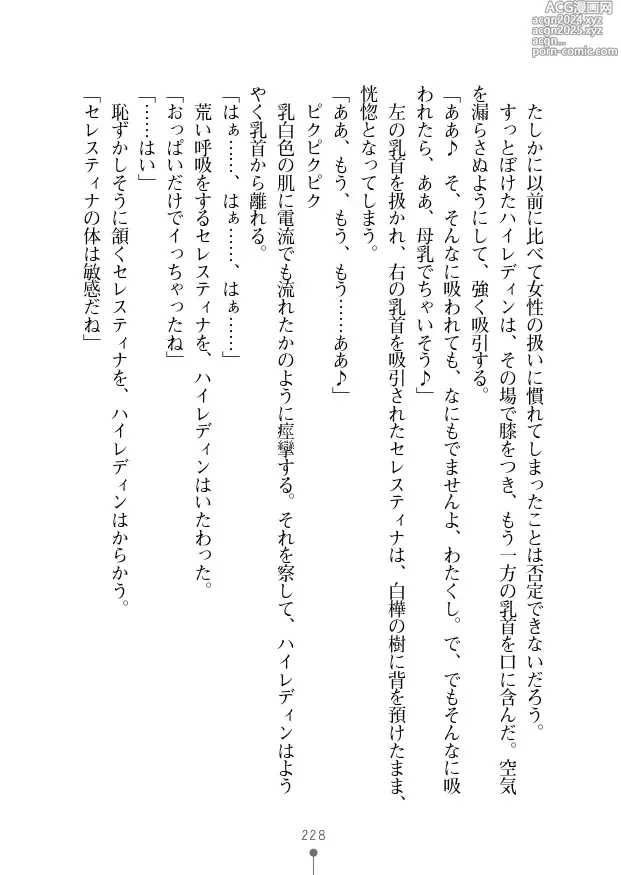 ACG漫画网
acgn2024.xyz
acgn2025.xyz
acgn...
porn-comic.com
たしかに以前に比べて女性の扱いに慣れてしまったことは否定できないだろう。
すっとぼけたハイレディンは、その場で膝をつき、もう一方の乳首を口に含んだ。空気
を漏らさぬようにして、強く吸引する。
「ああ♪　そ、そんなに吸われても、なにもでませんよ、わたくし。で、でもそんなに吸
われたら、ああ、母乳でちゃいそう♪」
左の乳首を扱かれ、右の乳首を吸引されたセレスティナは、白樺の樹に背を預けたまま、
恍惚となってしまう。
「ああ、もう、もう、もう……ああ♪」
ピクピクピク
乳白色の肌に電流でも流れたかのように痙攣する。それを察して、ハイレディンはよう
やく乳首から離れる。
「はぁ……、はぁ……、はぁ……」
荒い呼吸をするセレスティナを、ハイレディンはいたわった。
「おっぱいだけでイっちゃったね」
「……はい」
恥ずかしそうに頷くセレスティナを、ハイレディンはからかう。
「セレスティナの体は敏感だね」
228